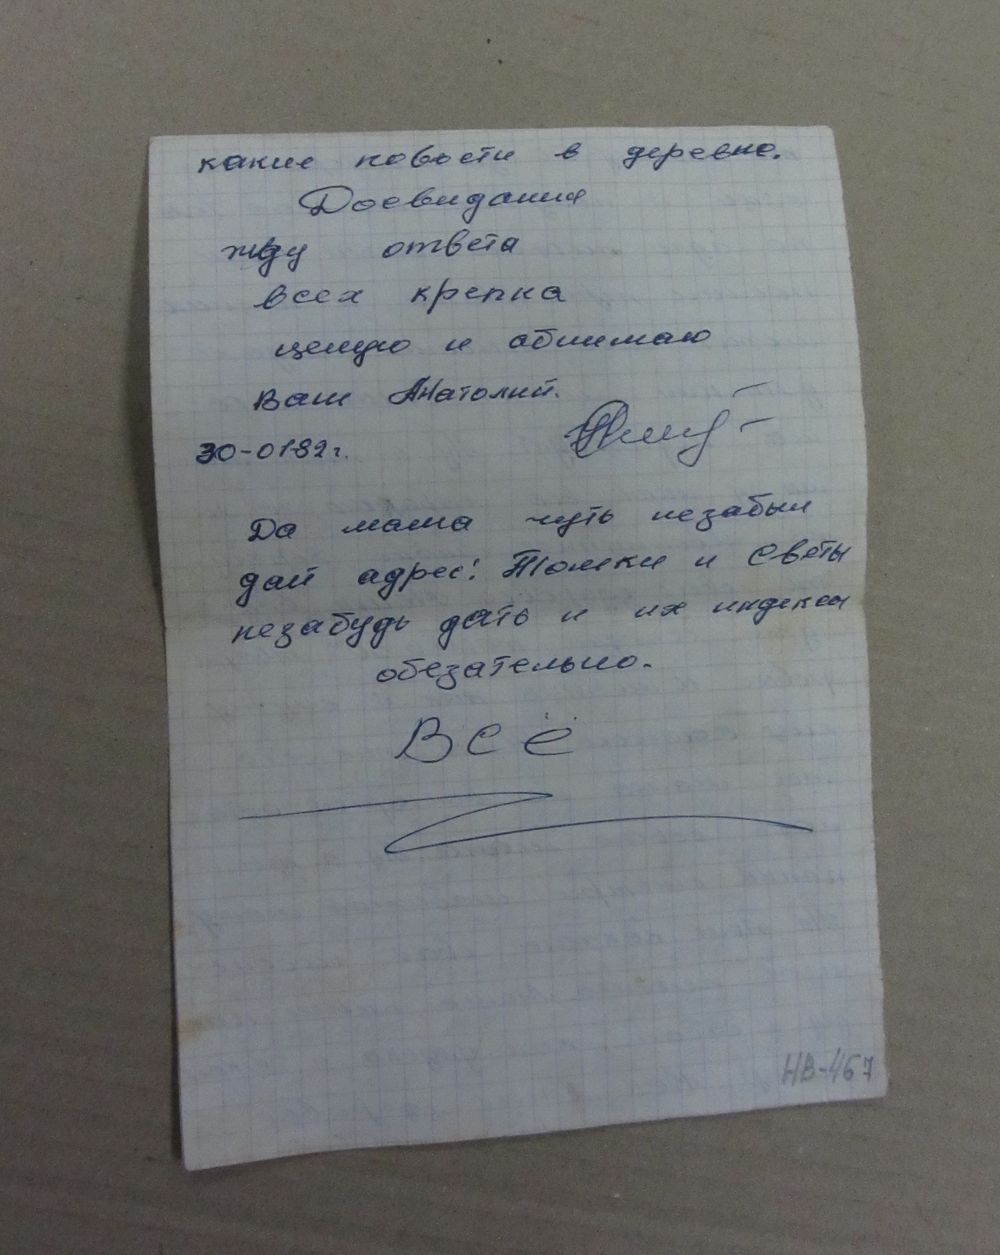 какие новости в деревне.
Досвидания
жду ответа
всех крепка
целую и абнимаю
Ваш Анатолий.
30-01-82г.
Да мама чуть незабыл
дай адрес: Томки и Светы
незабудь дать и их индексы
обезательно.
ВСЁ
НВ-467